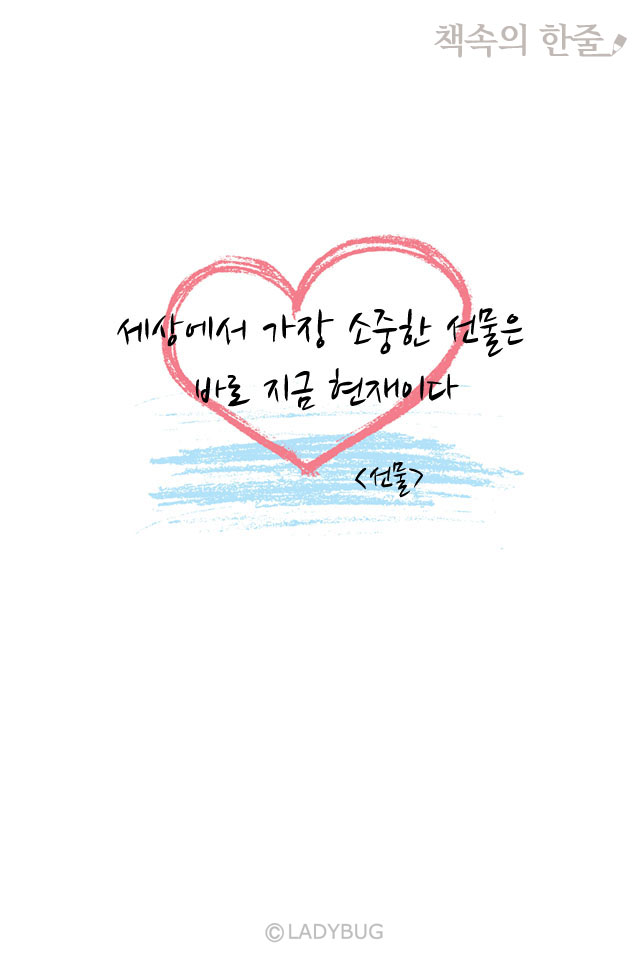 책속의 한줄
세상에서 가장 소중한 선물은
바로 지금 현재이다
<선물>
©LADYBUG